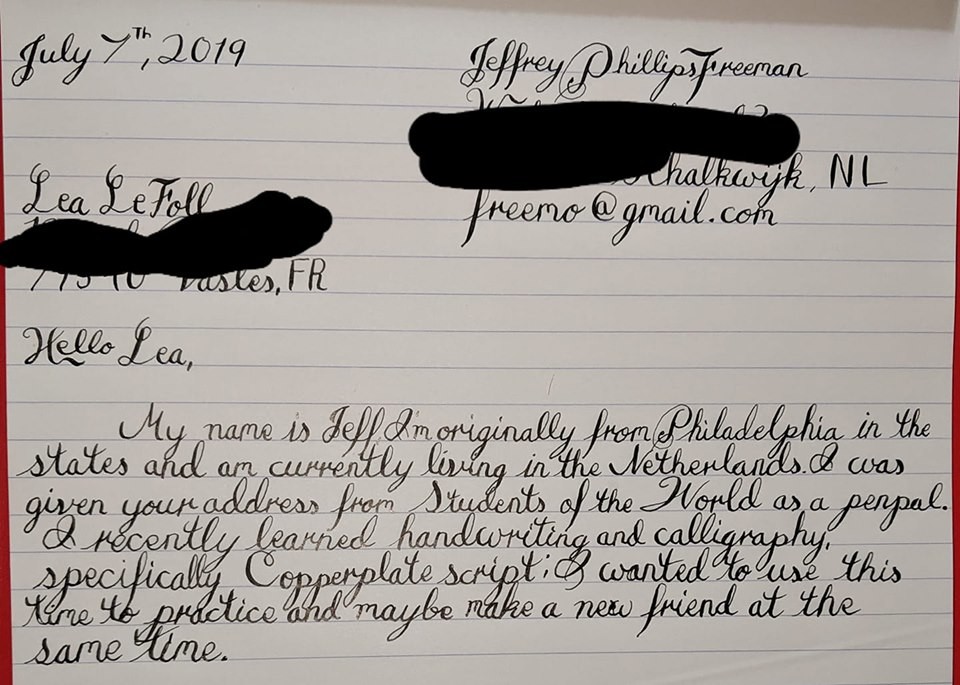 July 7th, 2019
Jeffrey Phillips Freeman
Schalkwijk, NL
freemo@gmail.com
Lea LeFoll
Vasles, FR
Hello Lea,
My name is Jeff I'm originally from Philadelphia in the
states and am currently living in the Netherlands. I was
given your address from Students of the World as a penpal.
I recently learned handwriting and calligraphy,
specifically Copperplate script; I wanted to use this
time to practice and maybe make a new friend at the
same time.